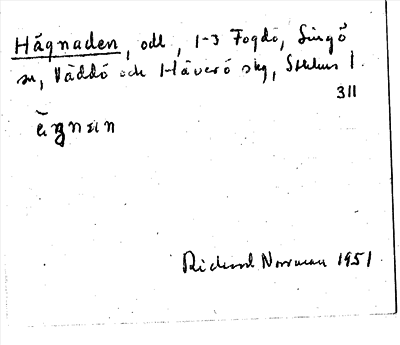 Hägnaden, odl, 1-3 Fogdö, Singö
sn, Väddö och Häverö skg, Sthlms l.
311
ägnan
Richard Norrman 1951